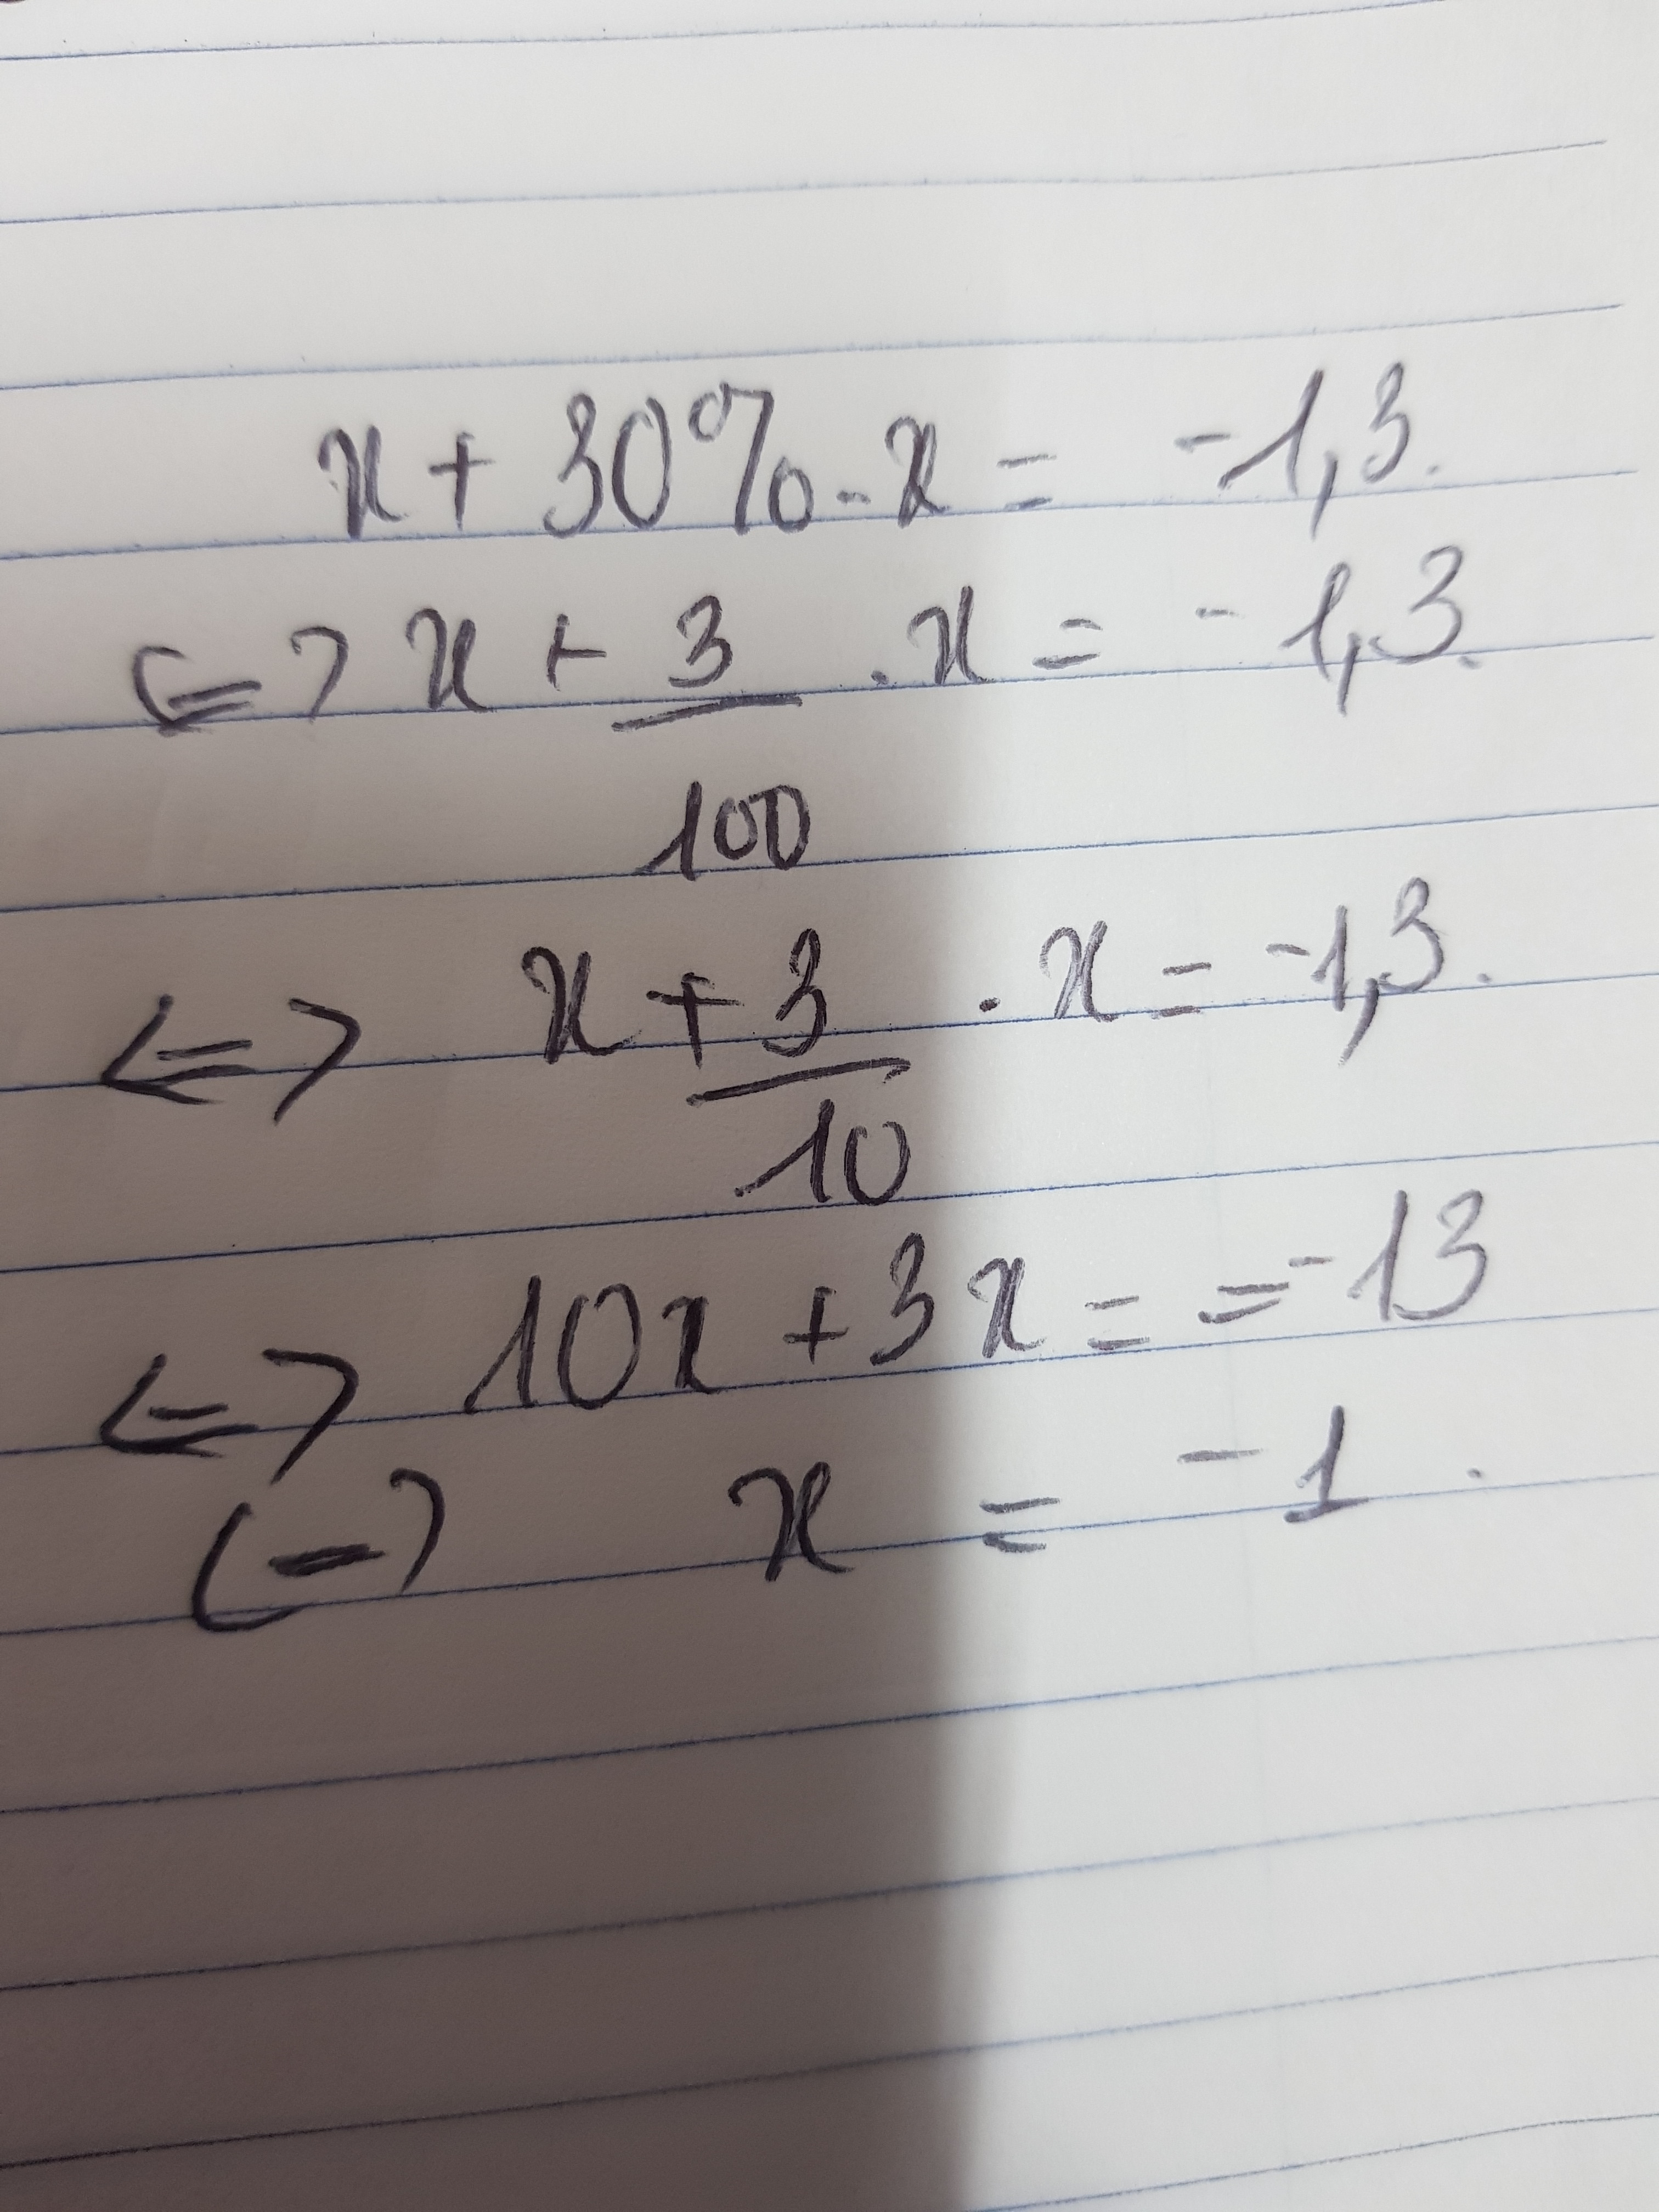 x + 30% . x = -1,3.
<=> x + 3/100 . x = -1,3.
<=> x + 3/10 . x = -1,3.
<=> 10x + 3x = = -13
(-) x = -1.